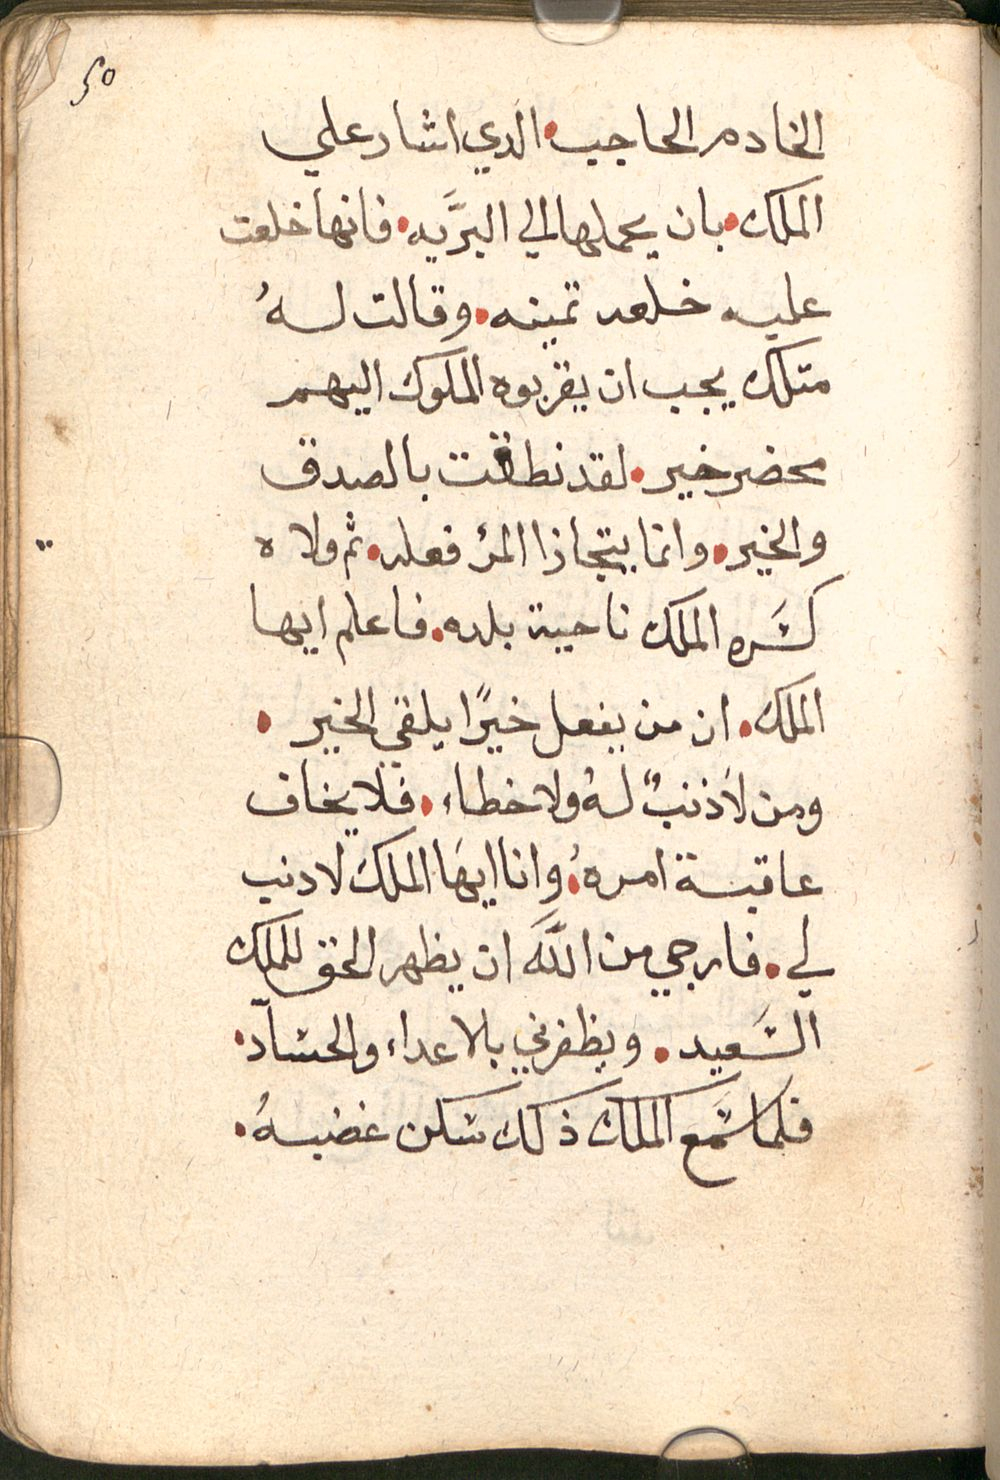 ٤٥
الخادم الحاجب. الدي اشار علي
الملك. بان يحملها الي البرَّيه. فانها خلعت
عليه خلعه تمينه. وقالت لهُ
متلك يجب ان يقربوه الملوك اليهم
محضر خير. لقد نطقت بالصدق
والخير. وانما يتجازا المرؤ فعله. ثم ولاه
كسَره الملك ناحية بلده. فاعلم ايها
الملك. ان من يفعل خيرًا يلقي الخير.
ومن لاَ ذنبٌ لهُ ولا خطاء. فلا يخاف
عاقبة امرهُ. وانا ايهَا الملك لا دنب
لي. فارجي من اللَّه ان يظهر الحق للملك
السَعيد. ويظفرني بالاعداء والحسَّاد.
فلما سَمع الملك ذلك سَكن غضبهُ.